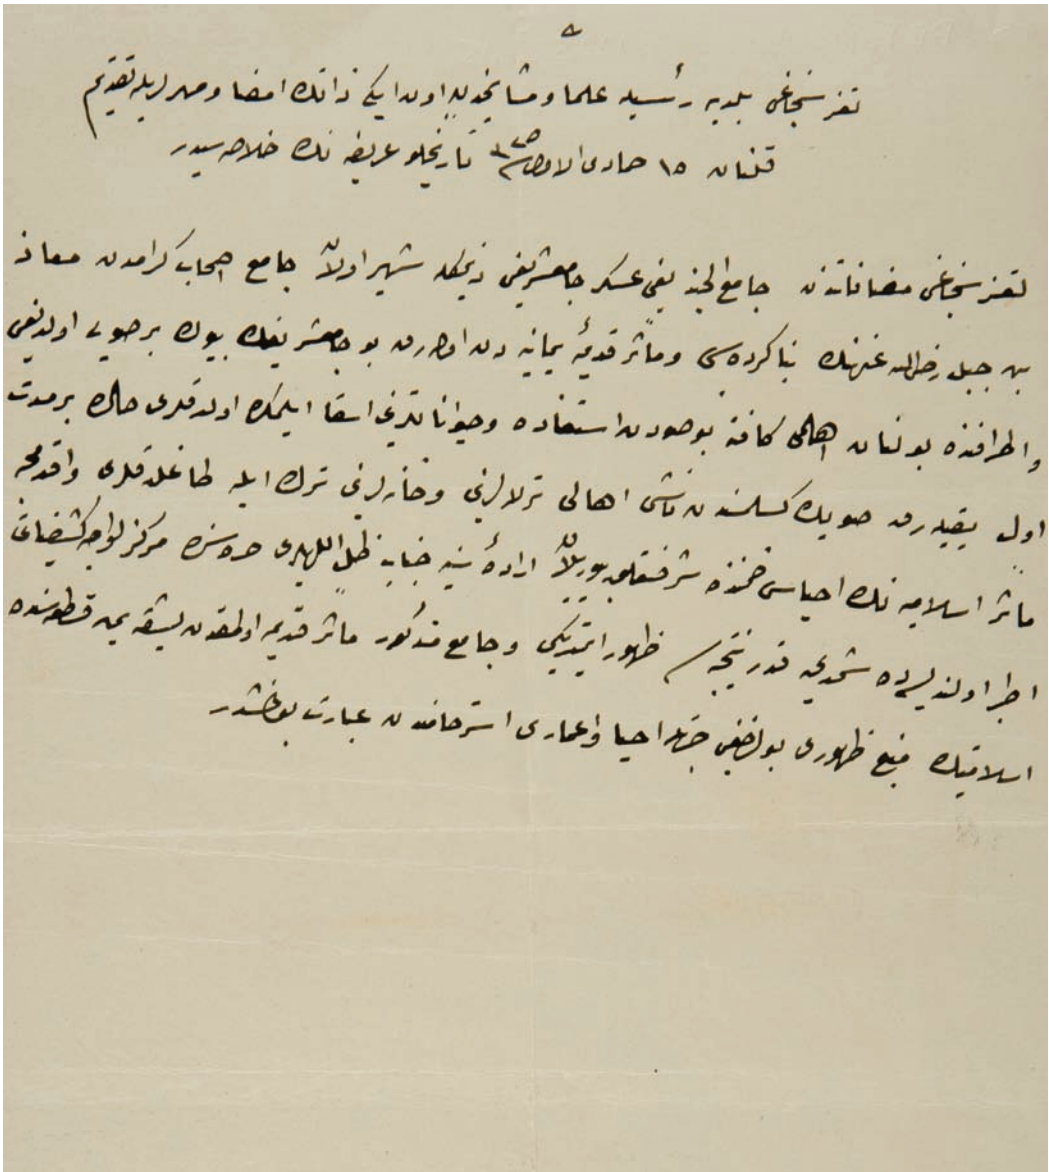 تعز سنجاغی بلدیه رئیسیله علما و مشایخدن اون ایکی ذاتك امضا و مهرلریله تقدیم
قلنان ١٥ جمادی الاول تاریخلو عریضه نك خلاصه سیدر
تعز سنجاغی مضافاتندن جامع الجند یعنی عسکر جامع شریفی دیمکله شهیر اولان جامع اصحاب کرامدن معاذ
بن جبل رضی الله عنهنك بنا کرده سی و مآثر قدیمۀ یمانیه دن اوله رق بو جامع شریفك بیوك بر صویی اولدیغی
و اطرافنده بولنان اهالی کافةً بو صودن استفاده و حیواناتلرینی اسقا ایلمکده اولدقلری حالده بر مدت
اول یقیله رق صوینك کسلمسندن ناشی اهالی ترلالرینی و خانه لرینی ترك ایله طاغلدقلری و اقدمجه
مآثر اسلامیه نك احیاسی ضمننده شرفتعلق بیوریلان ارادۀ سنیه جناب ظل اللهیلری اوزرینه مرکز لواجه کشفیاتی
اجرا اولندیسه ده شمدی یه قدر نتیجه سی ظهور ایتمدیکی و جامع مذکور مآثر قدیمه اولمقدن بشقه یمن قطعه سنده
اسلامیتك منبع ظهوری بولندیغی جهتله احیا و اعماری استرحامندن عبارت بولمشدر